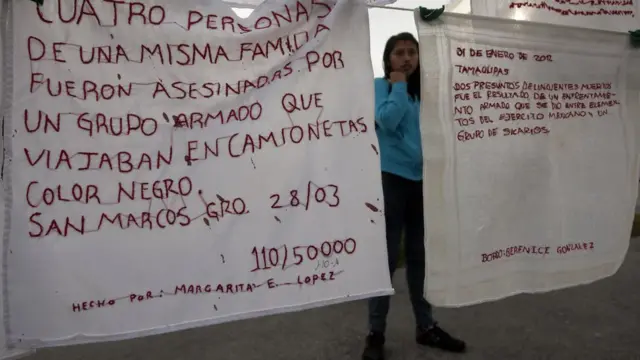 CUATRO PERSONAS
DE UNA MISMA FAMILIA
FUERON ASESINADAS POR
UN GRUPO ARMADO QUE
VIAJABAN EN CAMIONETAS
COLOR NEGRO.
SAN MARCOS GRO. 28/03
110/50000
HECHO POR: MARGARITA E. LOPEZ
01 DE ENERO DE 2012
TAMAULIPAS
DOS PRESUNTOS DELINCUENTES MUERTOS
FUE EL RESULTADO DE UN ENFRENTAMIE-
NTO ARMADO QUE SE DIO ENTRE ELEMEN-
TOS DEL EJERCITO MEXICANO Y UN
GRUPO DE SICARIOS
BORDO: BERENICE GONZALEZ